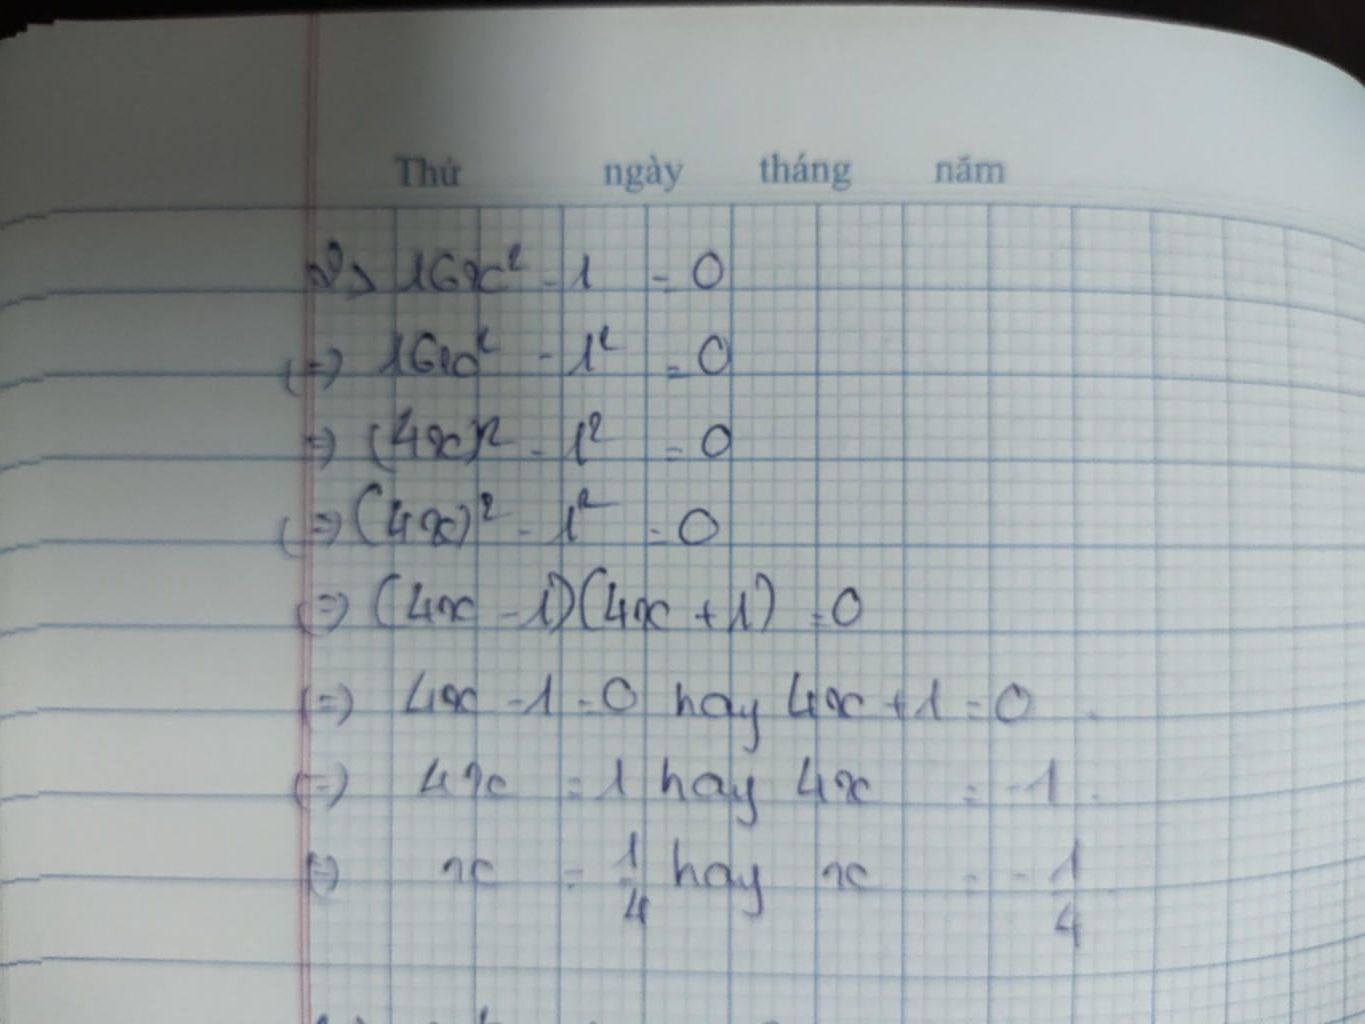 Thứ ngày tháng năm
16x² - 1 = 0
(=) 16x² - 1² = 0
=) (4x)² - 1² = 0
(=) (4x)² - 1² = 0
(=) (4x - 1)(4x + 1) = 0
(=) 4x - 1 = 0 hay 4x + 1 = 0
(=) 4x = 1 hay 4x = -1
(=) x = 1/4 hay x = -1/4